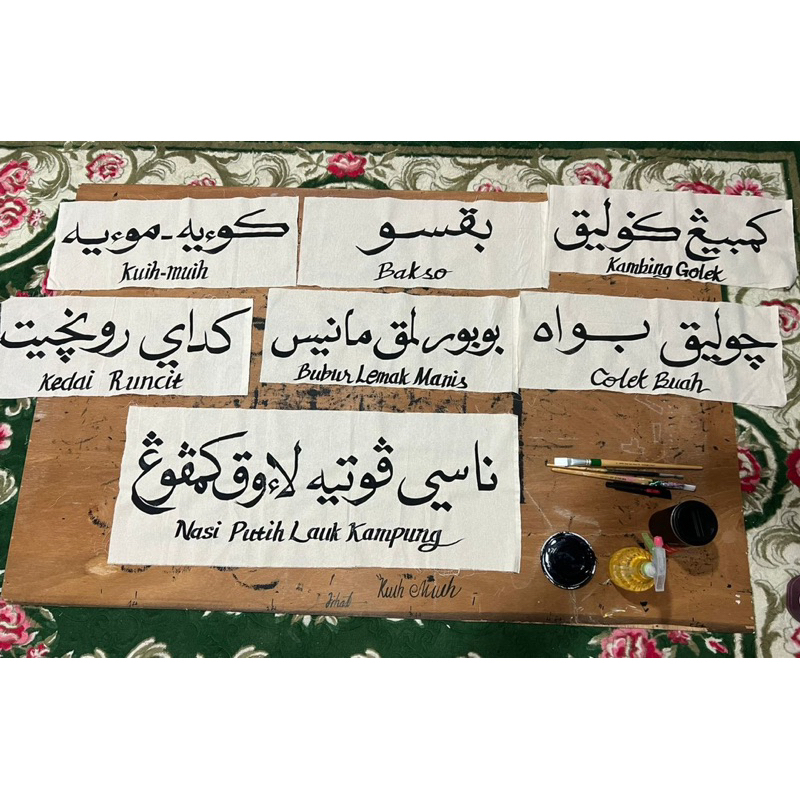 كوءيه-موءيه
Kuih-muih
بقسو
Bakso
كمبيڠ ݢوليق
Kambing Golek
كداي رونچيت
Kedai Runcit
بوبور لمق مانيس
Bubur Lemak Manis
چوليق بواه
Colek Buah
ناسي ڤوتيه لاءوق كمڤوڠ
Nasi Putih Lauk Kampung
Kuih Muih